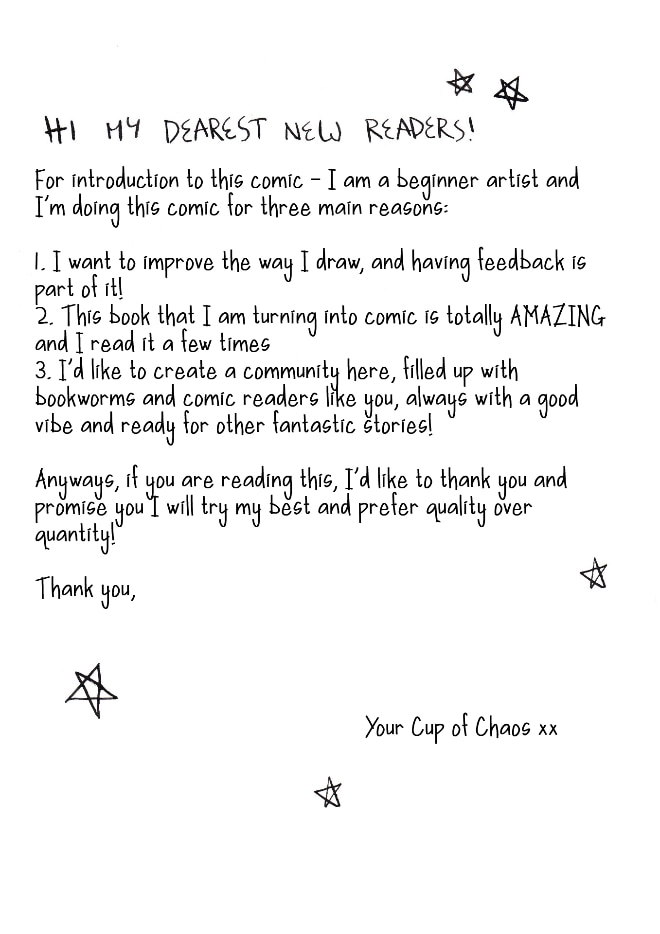 HI MY DEAREST NEW READERS!
For introduction to this comic - I am a beginner artist and
I'm doing this comic for three main reasons:
1. I want to improve the way I draw, and having feedback is
part of it!
2. This book that I am turning into comic is totally AMAZING
and I read it a few times
3. I'd like to create a community here, filled up with
bookworms and comic readers like you, always with a good
vibe and ready for other fantastic stories!
Anyways, if you are reading this, I'd like to thank you and
promise you I will try my best and prefer quality over
quantity!
Thank you,
Your Cup of Chaos xx